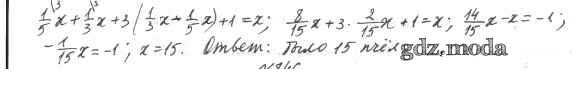 1/5 x + 1/3 x + 3 (1/3 x - 1/5 x) + 1 = x; 8/15 x + 3 · 2/15 x + 1 = x; 14/15 x - x = -1;
- 1/15 x = -1; x = 15. Ответ: было 15 пчёл
gdz.moda